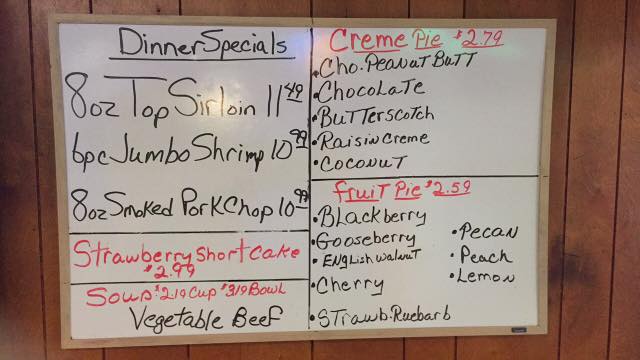 Dinner Specials
8oz Top Sirloin 11 49
6pc Jumbo Shrimp 10 99
8oz Smoked Pork Chop 10 99
Strawberry Short Cake
$2.99
Soup $2.19 Cup $3.19 Bowl
Vegetable Beef
Creme Pie $2.79
• Cho. Peanut Butt
• Chocolate
• Butterscotch
• Raisin Creme
• Coconut
Fruit Pie $2.59
• Blackberry
• Gooseberry
• English walnut
• Cherry
• Strawb. Ruebarb
• Pecan
• Peach
• Lemon